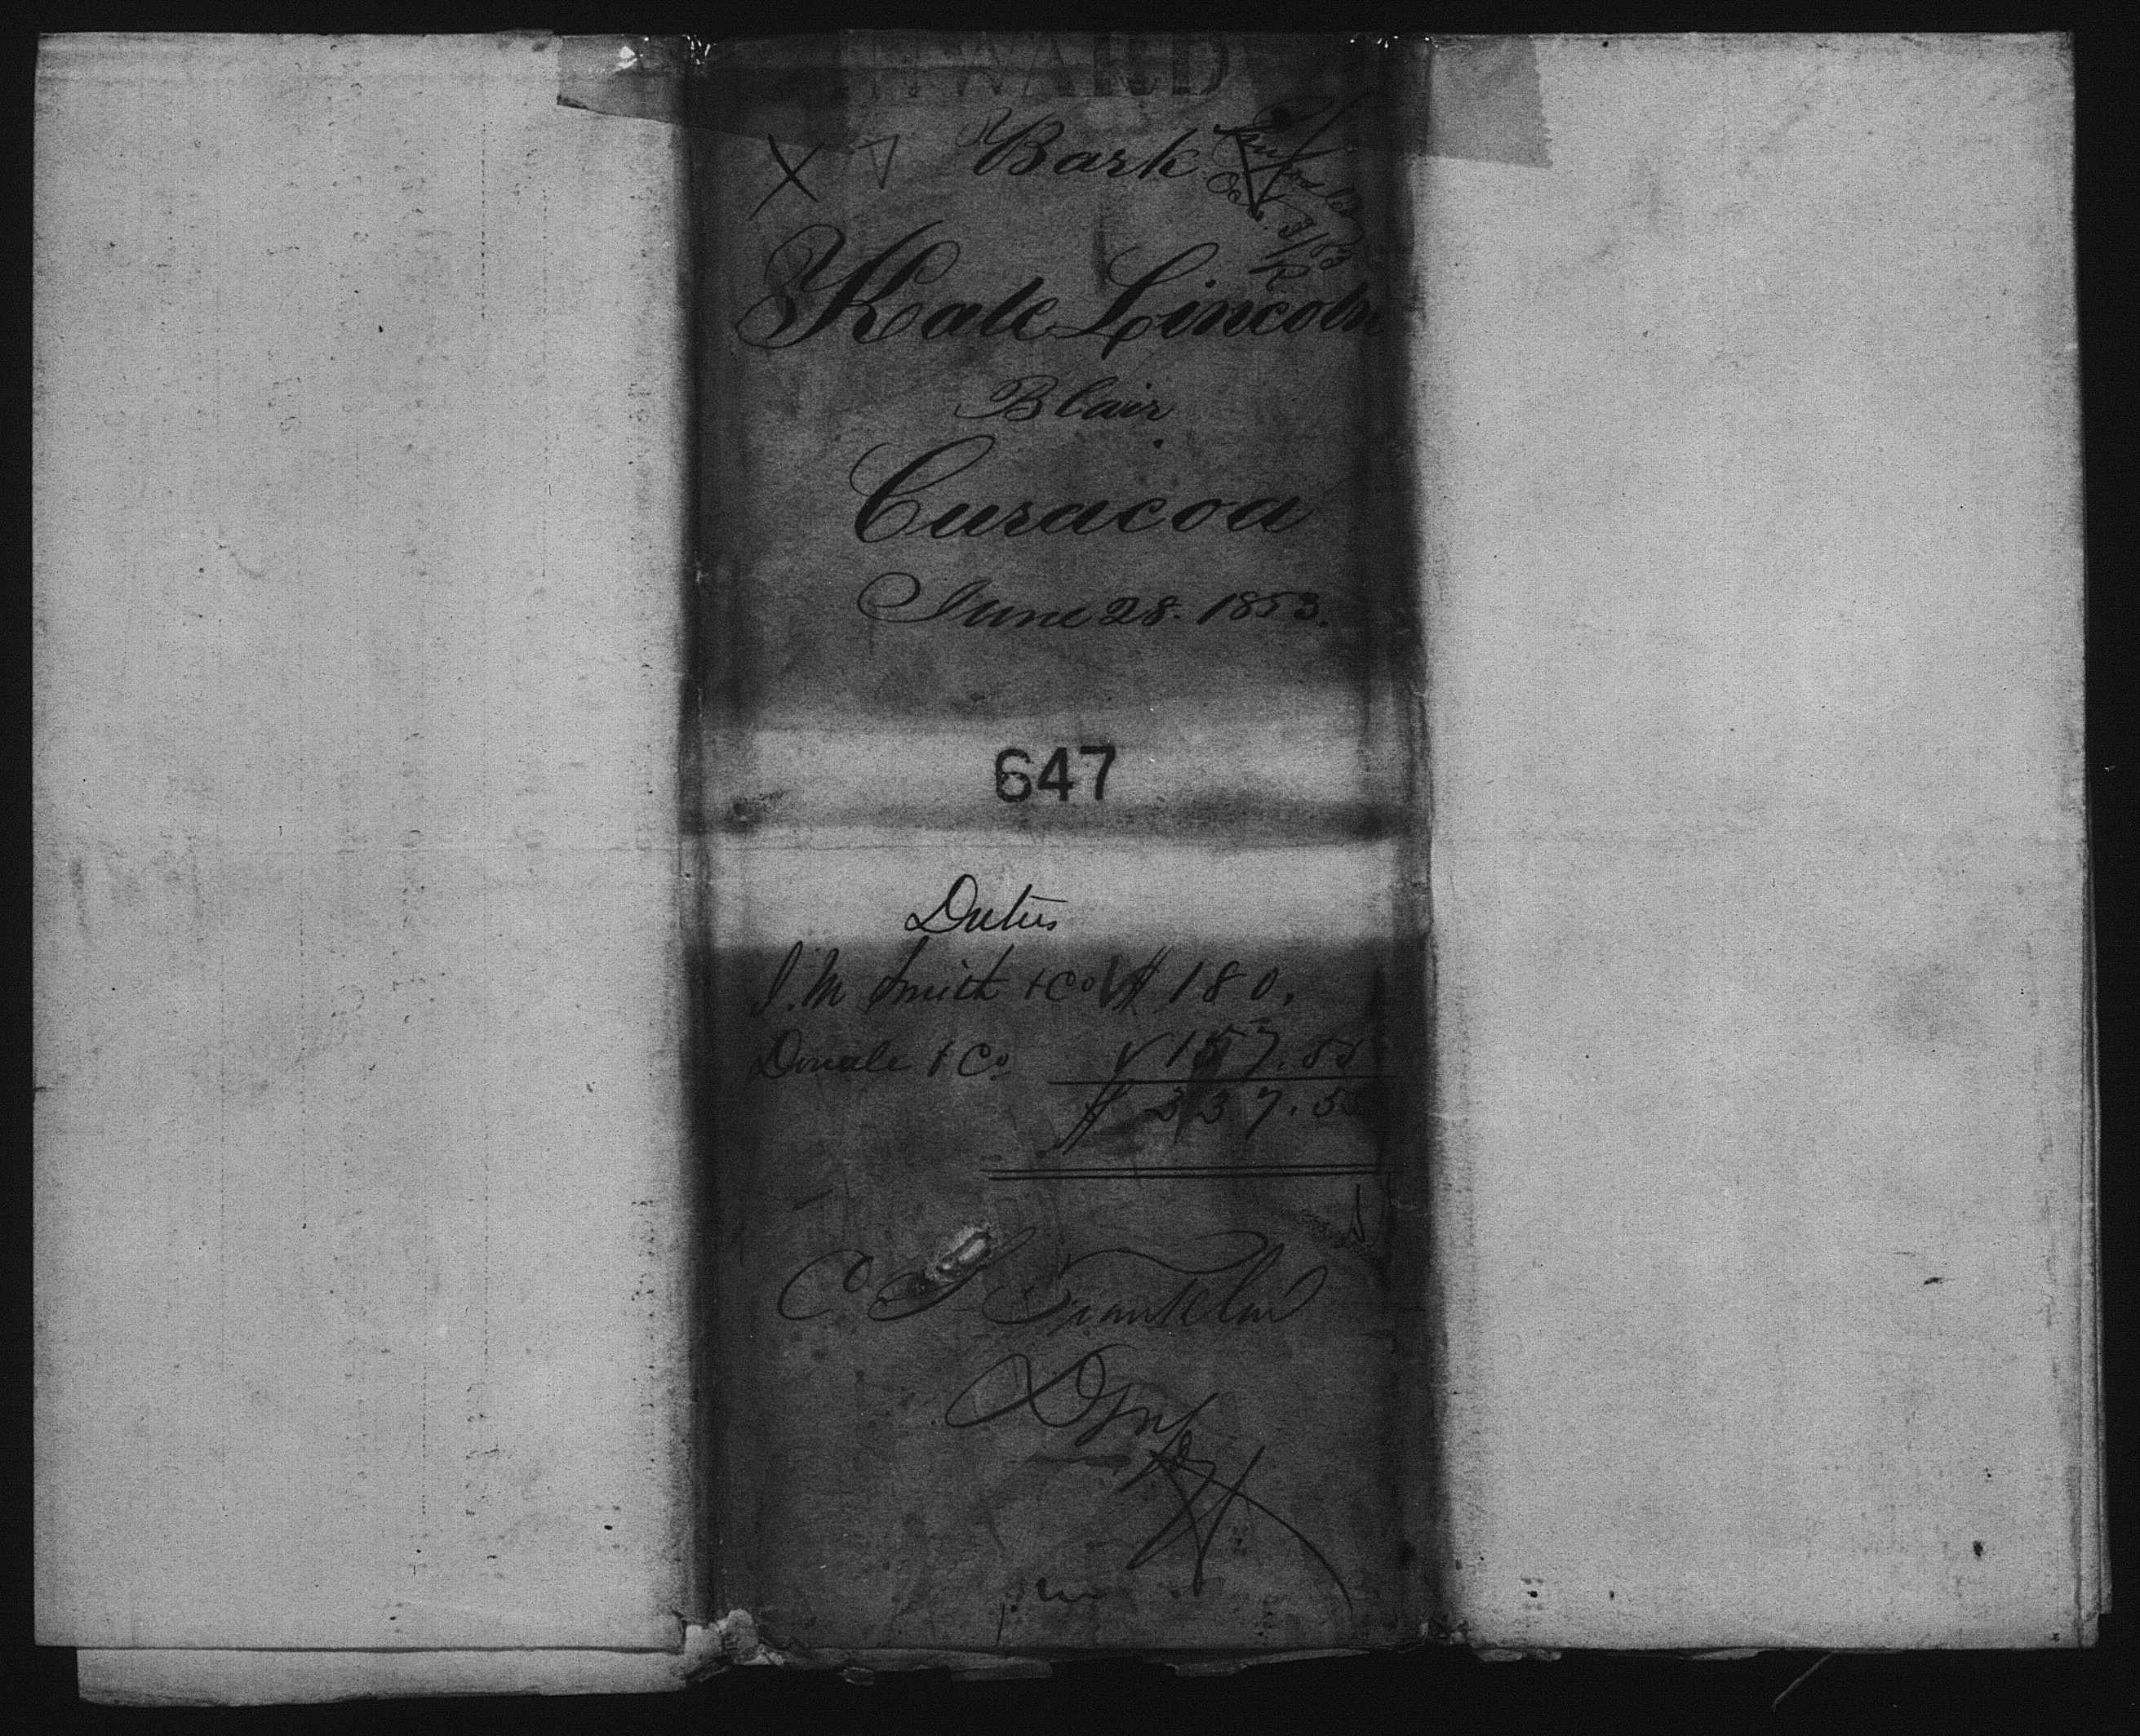 INWARD
X Bark
Kate Lincoln
Blair
Curacoa
June 28. 1853.
647
Duties
J. M Smith + Co $ 180.
Dovale + Co 157.55
$ 337.55
Franklin